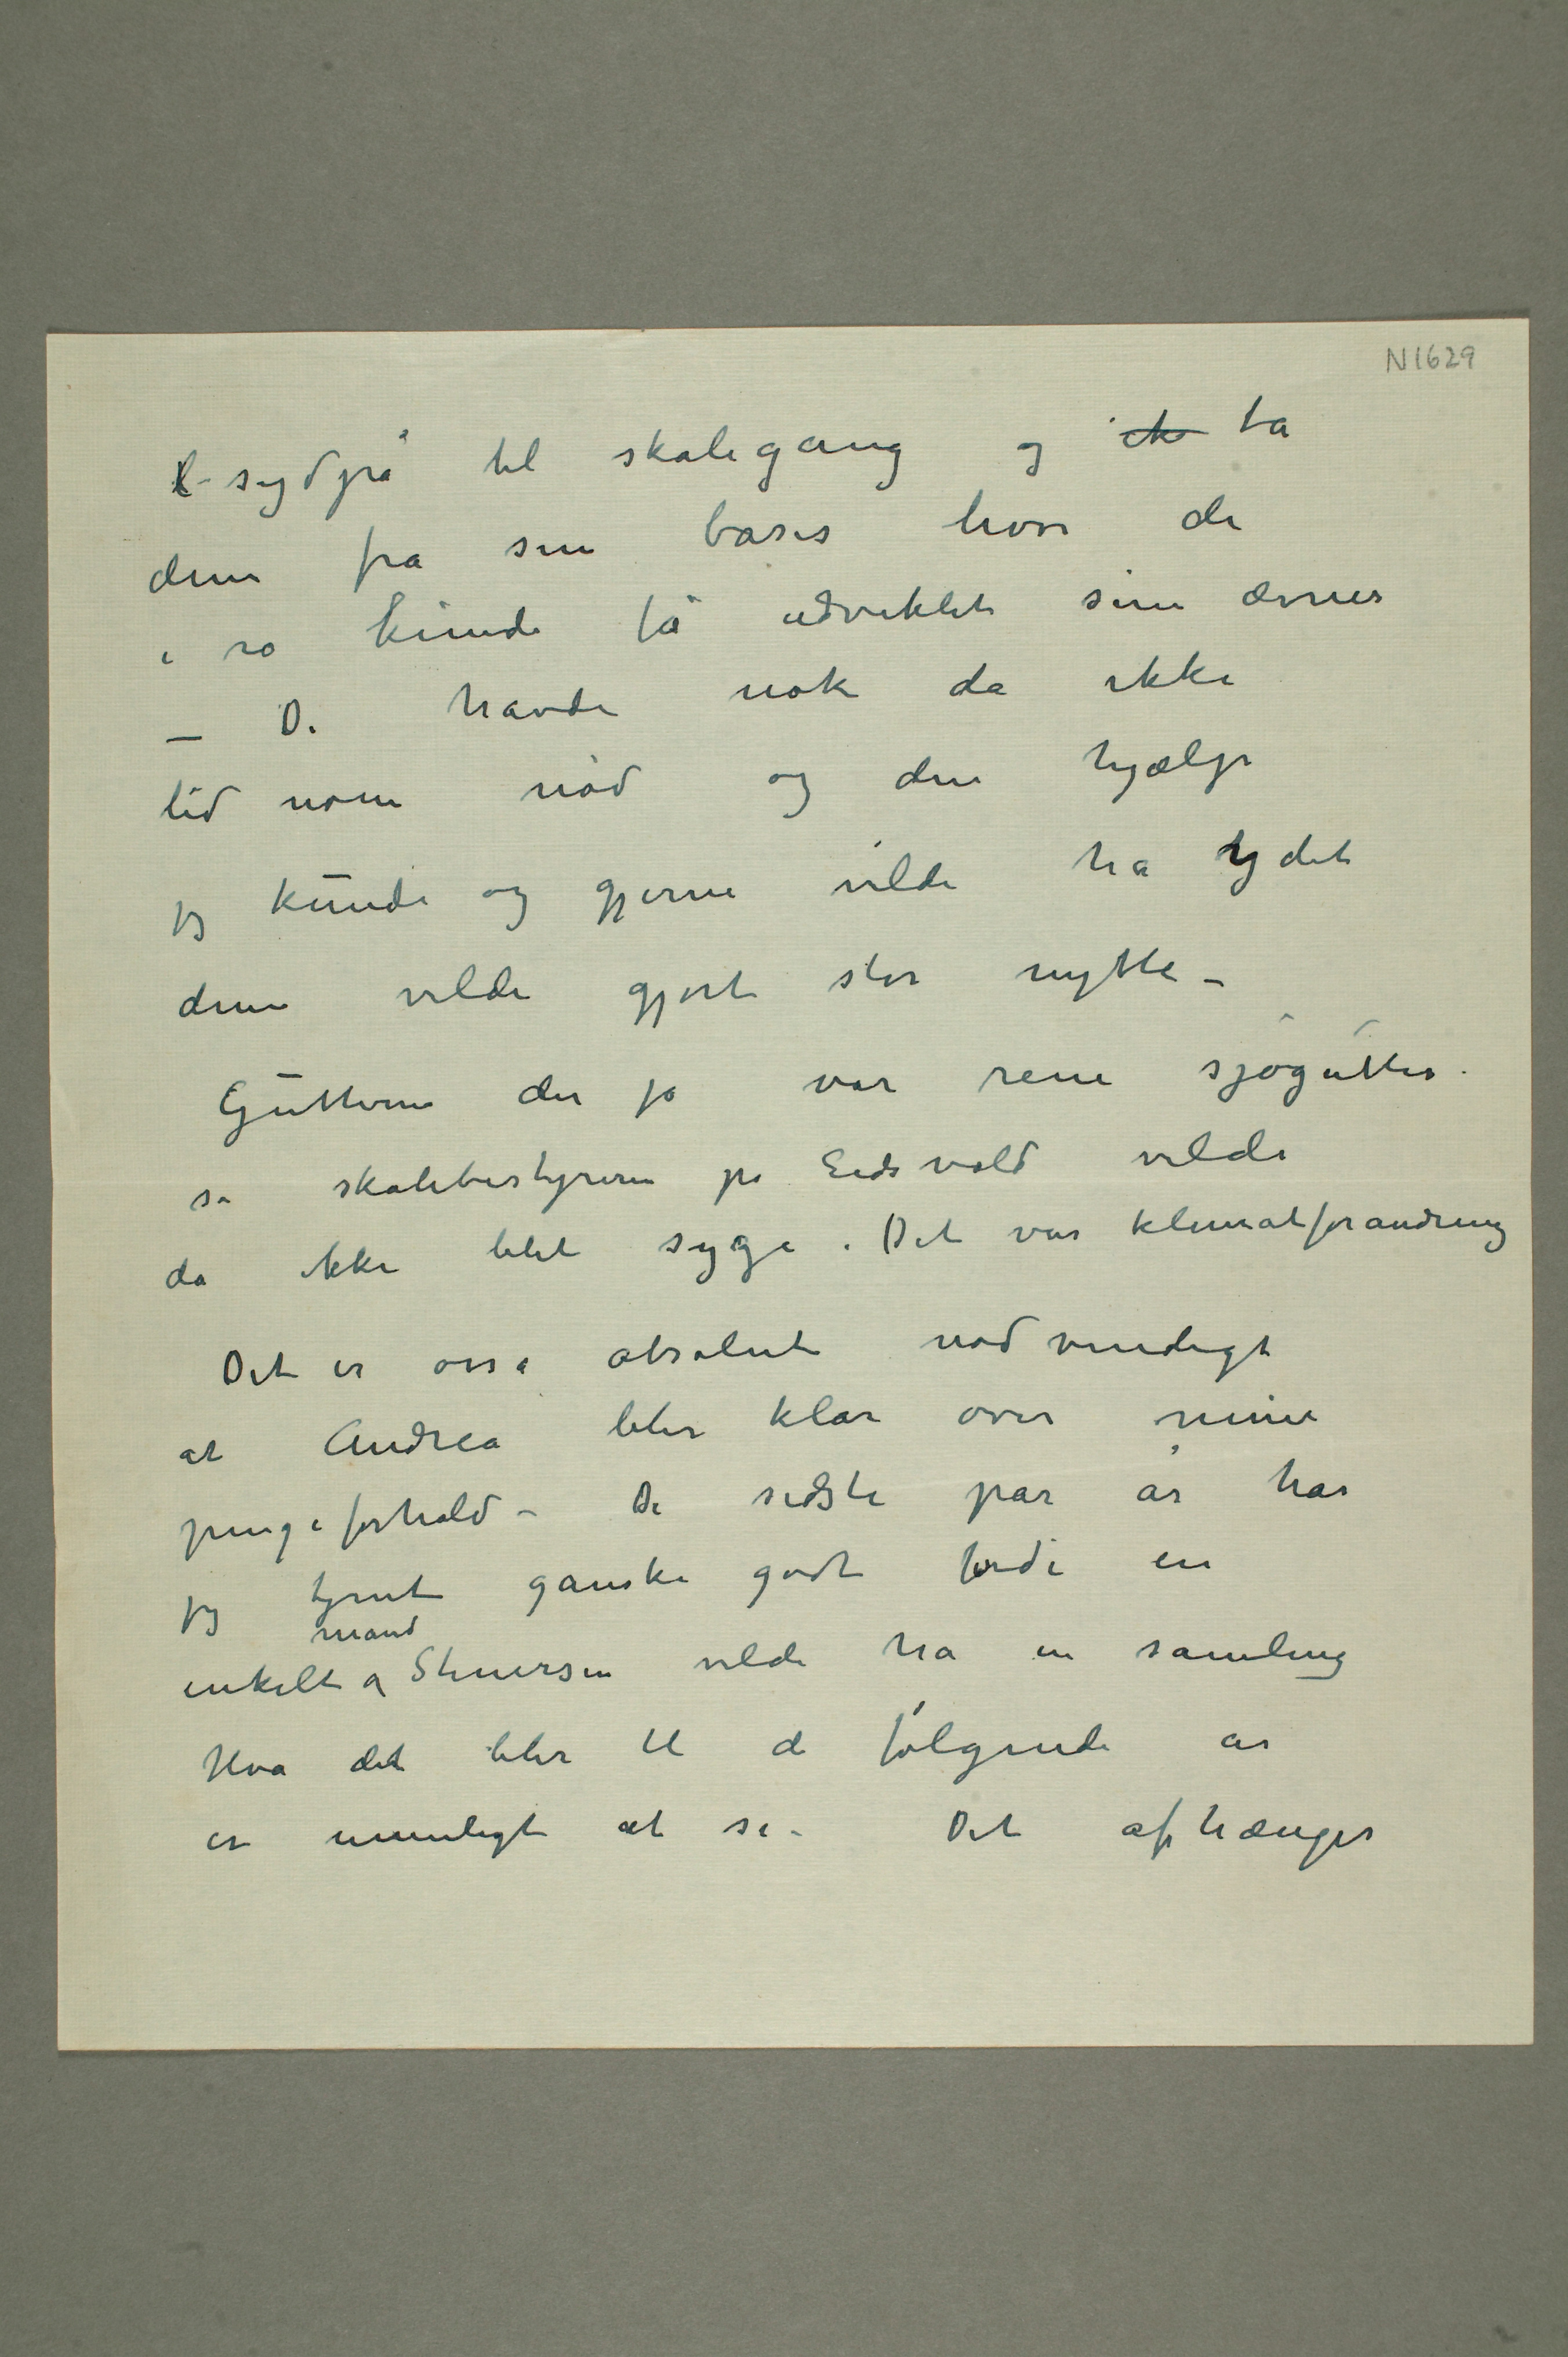 N1629
sydpå til skolegang og ik ta
dem fra sin basis hvor de
i ro kunde få udviklet sine ævner
– De havde nok da ikke
lid nom nød og den hjælp
jeg kunde og gjerne vilde ha ydet
dem vilde gjort stor nytte –
Gutterne der jo var rene sjøgutter.
sa skolebestyreren på Eidsvold vilde
da ikke blit syge. Det var klimatforandring
Det er osså absolut nødvendigt
at Andrea blir klar over mine
pengeforhold – De sidste par år har
jeg tjent ganske godt fordi en
mand
enkelt Stenersen vilde ha en samling
Hva det blir til de følgende år
er umuligt at si – Det afhænger